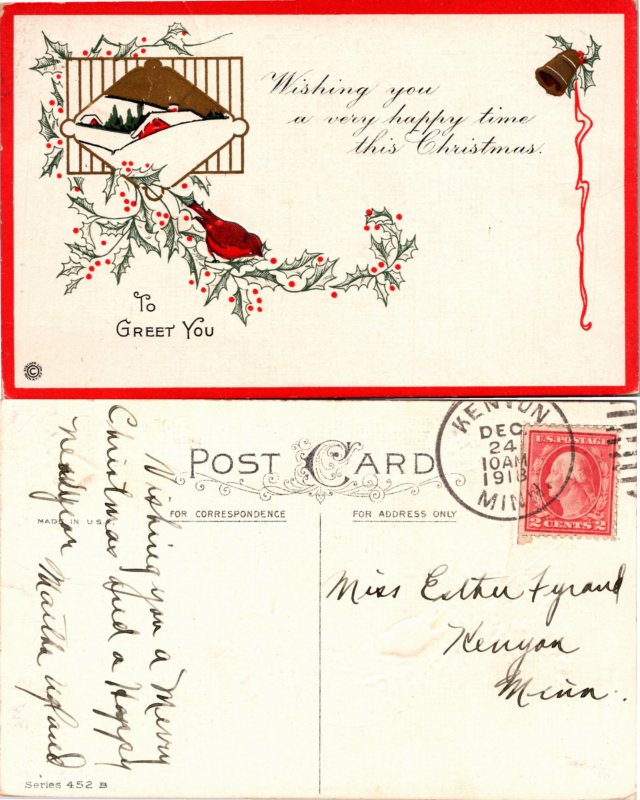 Wishing you
a very happy time
this Christmas.
To
Greet You
©
KENYON
DEC
24
10AM
1918
MINN.
U.S. POSTAGE
2 CENTS 2
POST CARD
MADE IN U.S.A.
FOR CORRESPONDENCE
FOR ADDRESS ONLY
Wishing you a Merry
Christmas And a Happy
New year Martha
Miss Esther
Kenyon
Minn.
Series 452 B